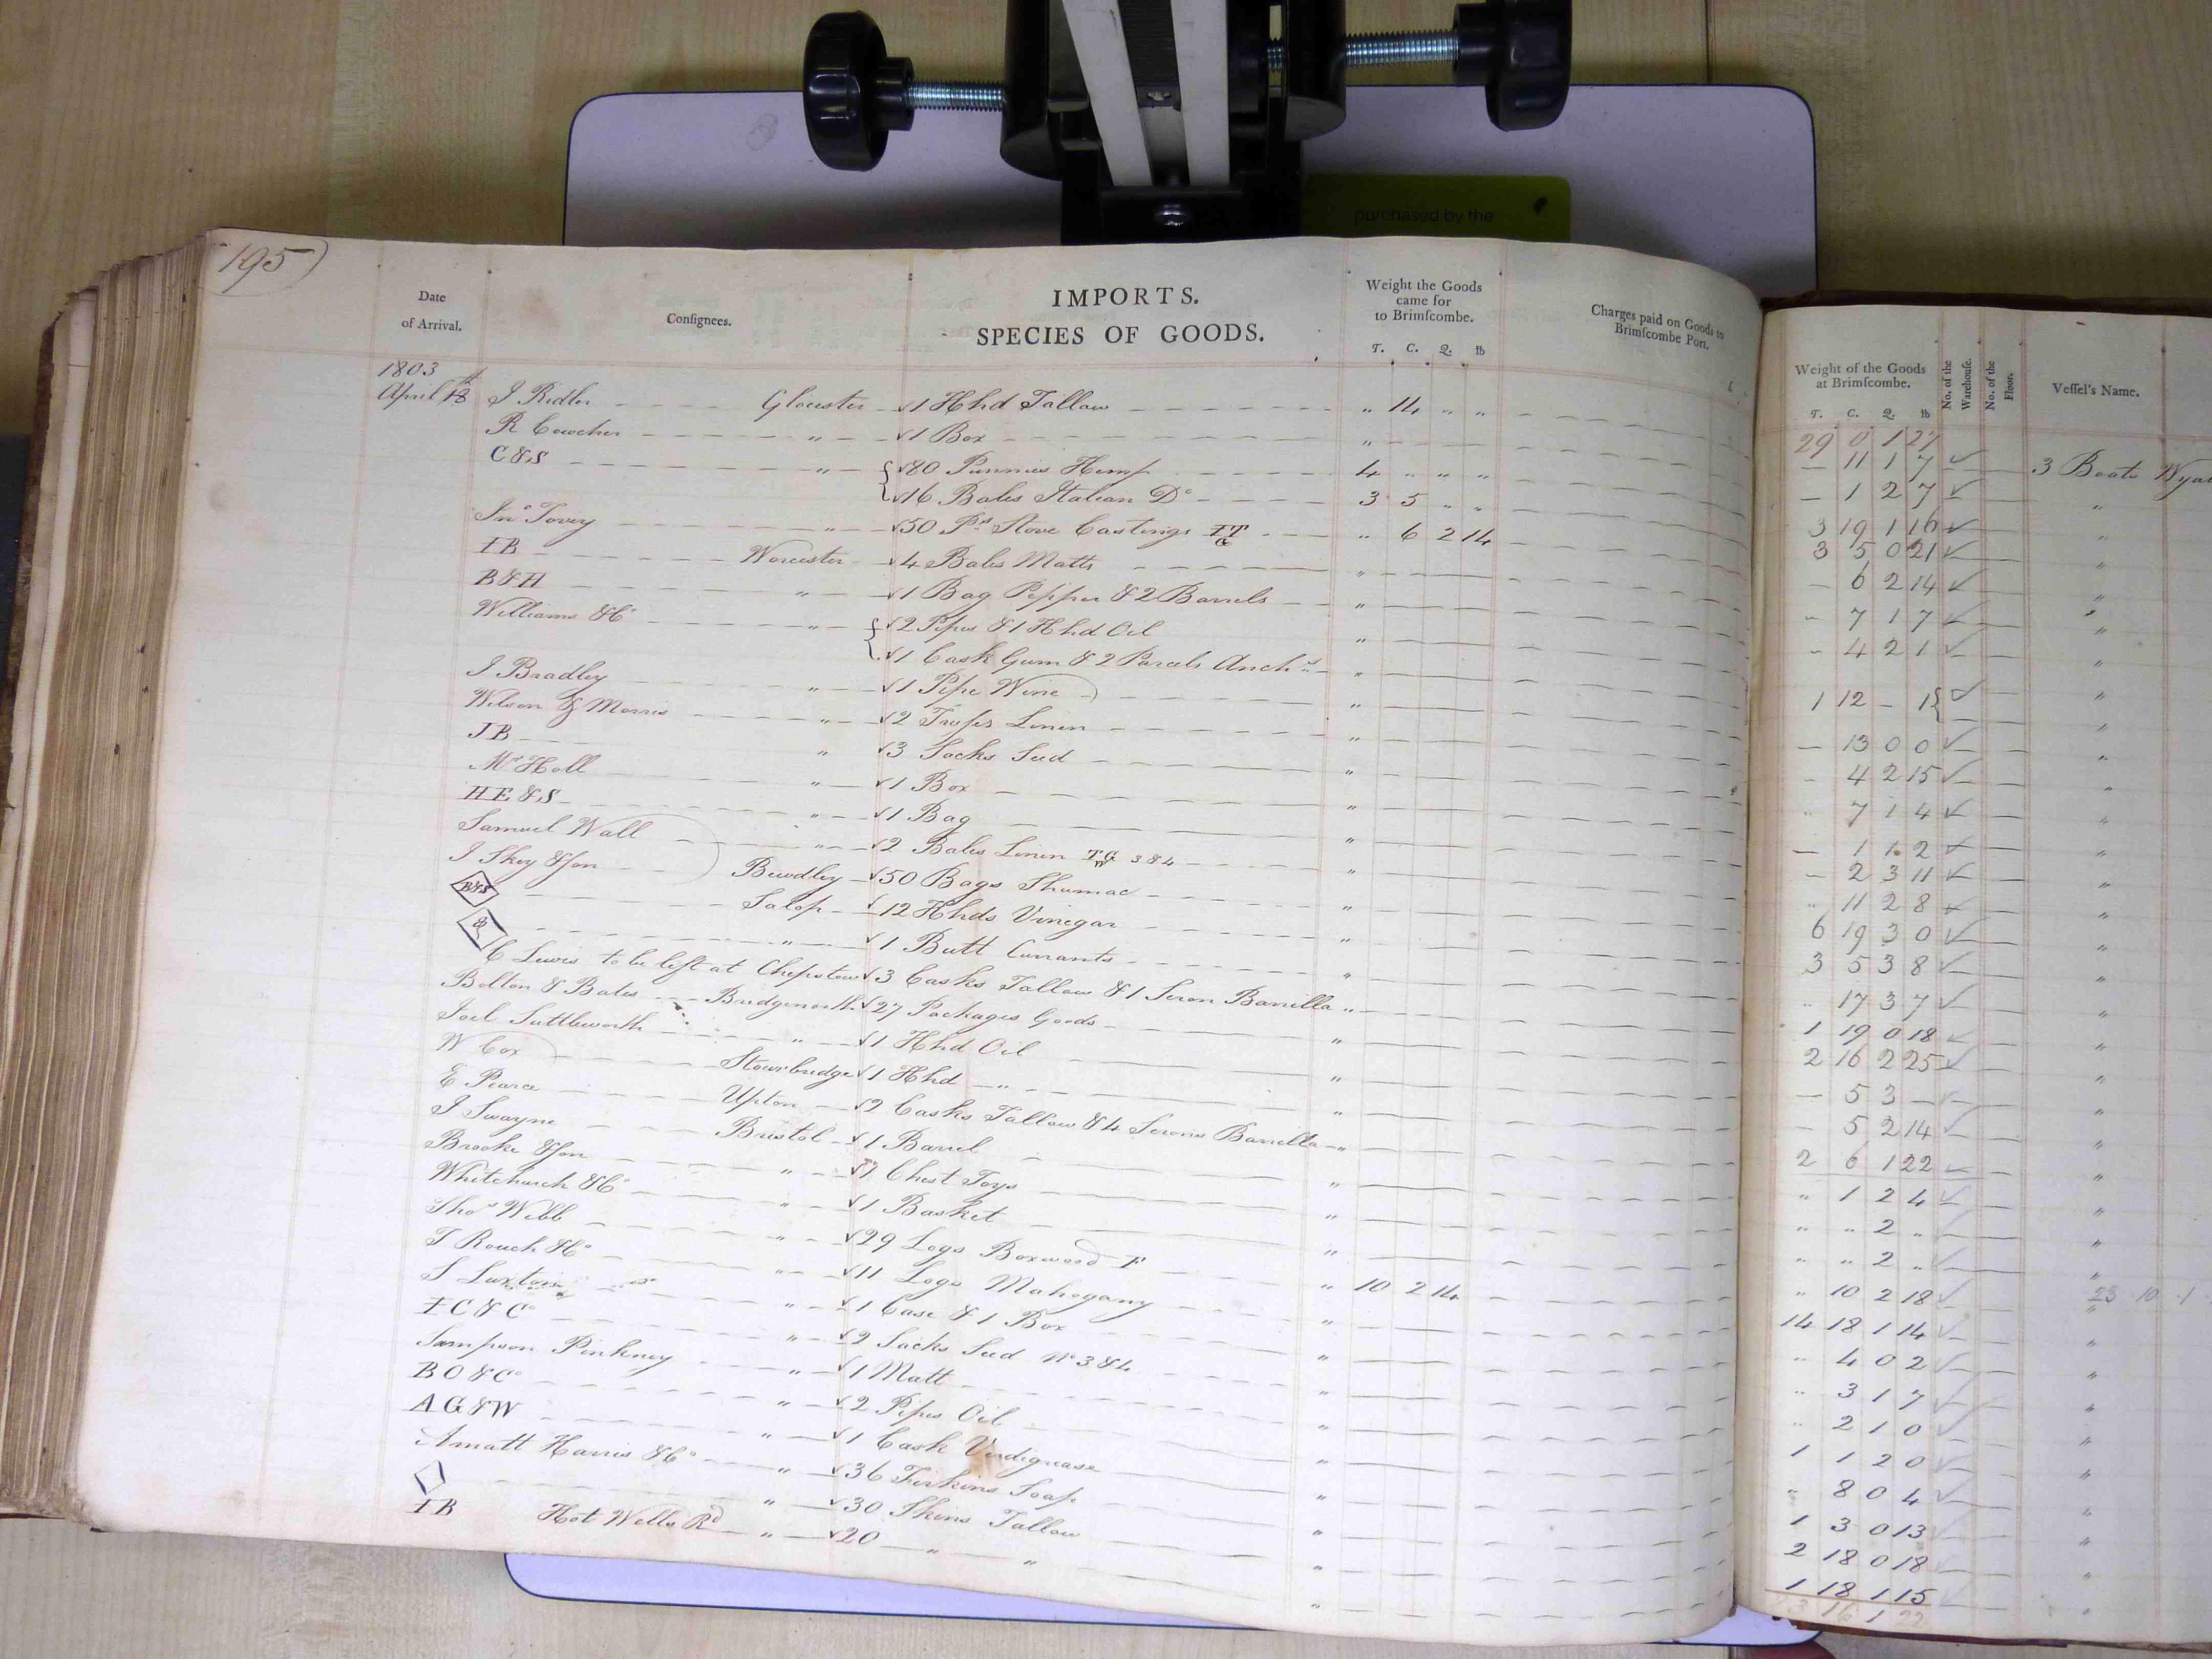 purchased by the
195)
Date
of Arrival.
Consignees.
IMPORTS.
SPECIES OF GOODS.
Weight the Goods
came for
to Brimscombe.
T. C. Q. lb
Charges paid on Goods to
Brimscombe Port.
Weight of the Goods
at Brimscombe.
T. C. Q. lb
No. of the
Warehouse.
No. of the
Floor.
Vessel's Name.
29 0 1 27
1803
April 18th J Ridler Glocester 1 Hhd Tallow " 14 " " — 11 1 7 3 Boats
R Cowcher " 1 Box " — 1 2 7 "
C&S " 80 Punnies Hemp 4 " " " 3 19 1 16 "
16 Bales Italian Do 3 5 " " 3 5 0 21 "
Jno Tovey " 50 Ps Stove Castings " 6 2 14 — 6 2 14 "
IB Worcester 4 Bales Matts " " 7 1 7 "
B&H " 1 Bag Pepper & 2 Barrels " " 4 2 1 "
Williams &Co " 2 Pipes & 1 Hhd Oil " 1 12 – 1 "
1 Cask Gum & 2 Parcels " "
J Bradley " 1 Pipe Wine " — 13 0 0 "
Wilson & Morris " 2 Trusses Linen " - 4 2 15 "
JB " 3 Sacks Seed " " 7 1 4 "
Mr Holl " 1 Box " — 1 1 2 "
HE&S " 1 Bag " — 2 3 11 "
Samuel Wall " 2 Bales Linen 3&4 " " 11 2 8 "
J Skey &Son Bewdley 50 Bags Shumac " 6 19 3 0 "
B&S Salop 12 Hhds Vinegar " 3 5 3 8 "
& " 1 Butt Currants " " 17 3 7 "
C Lewis to be left at Chepstow 3 Casks Tallow & 1 Seron Barrilla " 1 19 0 18 "
Bolton & Bates Bridgenorth 27 Packages Goods " 2 16 2 25 "
Joel Suttleworth " 1 Hhd Oil " — 5 3 — "
W Cox Stourbridge 1 Hhd " " — 5 2 14 "
E Pearce Upton 2 Casks Tallow & 4 Serons Barrilla " 2 6 1 22 "
J Swayne Bristol 1 Barrel " " 1 2 4 "
Brooke &Son " 1 Chest Toys " " " 2 " "
Whitchurch &Co " 1 Basket " " " 2 " "
Thos Webb " 29 Logs Boxwood F " 10 2 14 " 10 2 18 " 23 10 1
T Rouch &Co " 11 Logs Mahogany " 14 18 1 14 "
S Luxton " 1 Case & 1 Box " " 4 0 2 "
IC&Co " 2 Sacks Seed No 3&4 " " 3 1 7 "
Sampson Pinkney " 1 Matt " " 2 1 0 "
BO&Co " 2 Pipes Oil " 1 1 2 0 "
AG&W " 1 Cask Verdigrease " " 8 0 4 "
Amatt Harris &Co " 36 Firkins Soap " 1 3 0 13 "
" 30 Skins Tallow " 2 18 0 18 "
IB Hot Wells Rd " 20 " " " 1 18 1 15 "